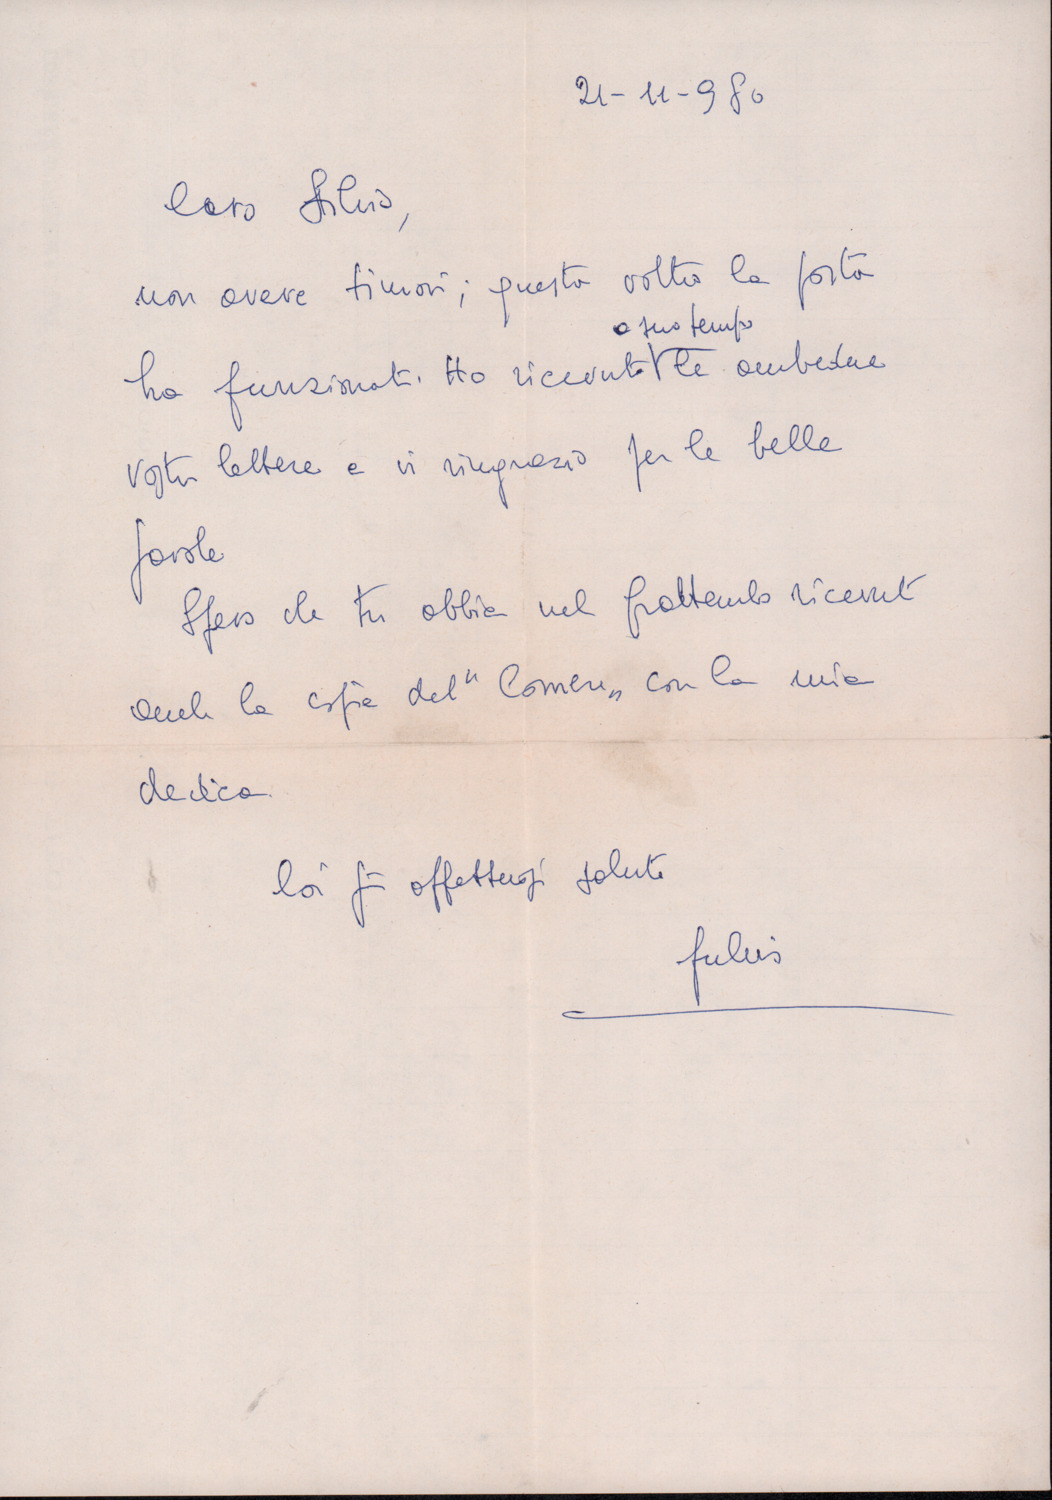 21-11-980
Caro Silvio,
non avere timori; questa volta la posta
a suo tempo
ha funzionato. Ho ricevuto le ambedue
vostre lettere e vi ringrazio per le belle
parole
Spero che tu abbia nel frattempo ricevuto
anche la copia del " Corriere „ con la mia
dedica.
Coi più affettuosi saluti
Fulvio